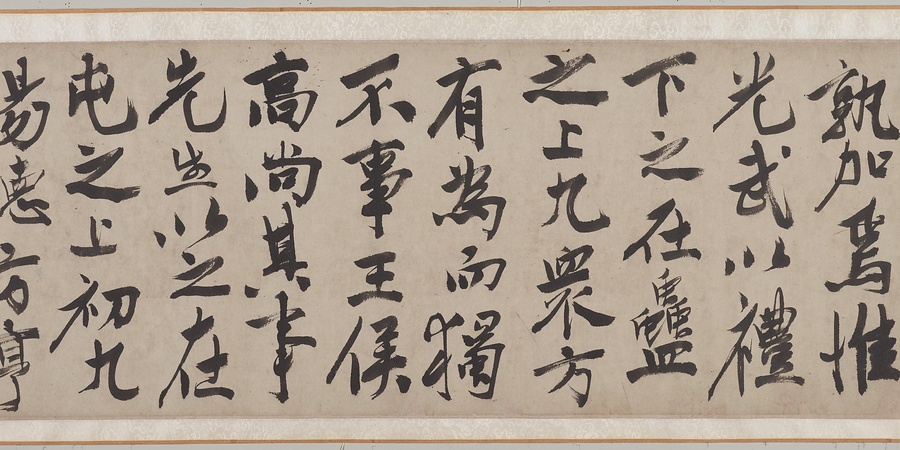 孰加焉惟
光武以禮
下之在蠱
之上九衆方
有為而獨
不事王侯
高尚其事
先生以之在
屯之上初九
陽德方亨